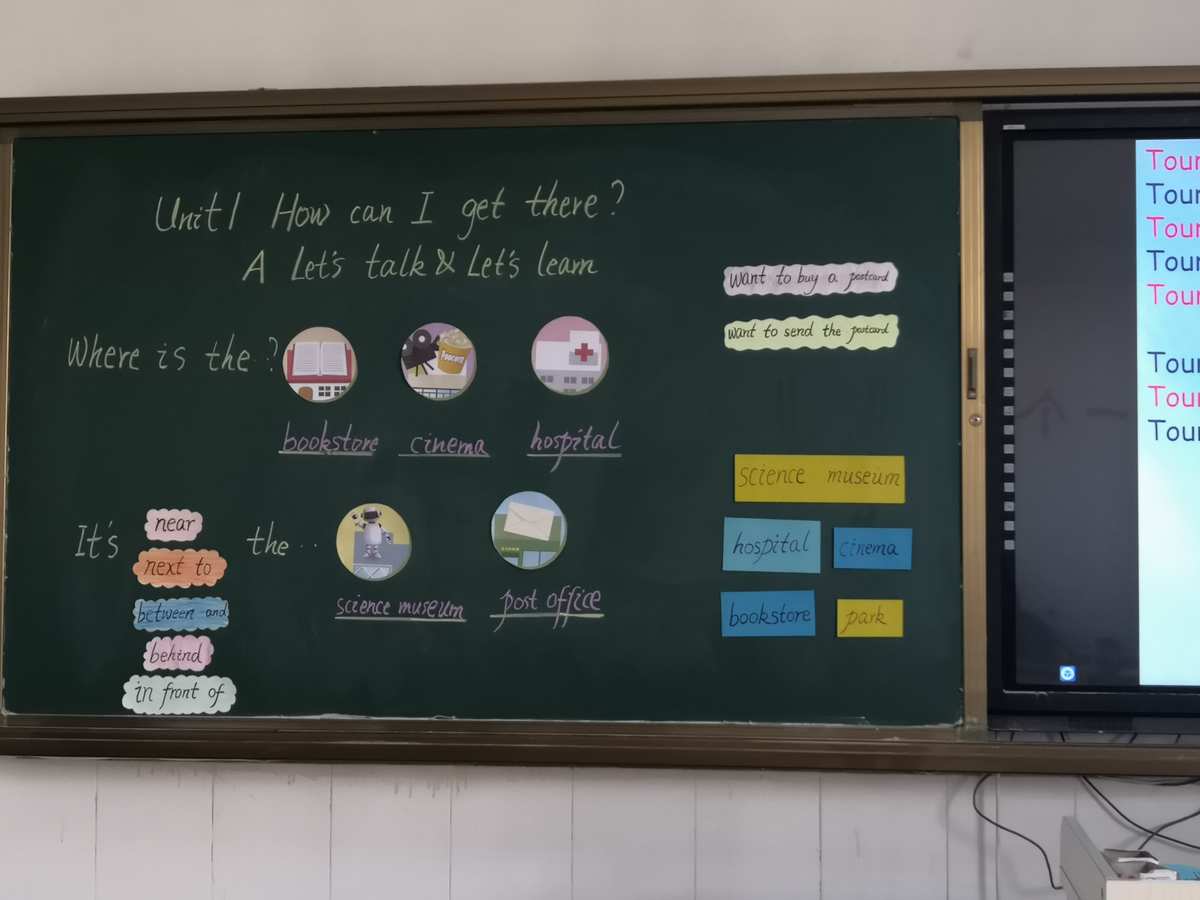 Unit 1 How can I get there?
A Let's talk & Let's learn
Where is the...?
bookstore cinema hospital
It's
near
next to
between and
behind
in front of
the...
science museum post office
want to buy a postcard
want to send the postcard
science museum
hospital cinema
bookstore park
Tour
Tour
Tour
Tour
Tour
Tour
Tour
Tour